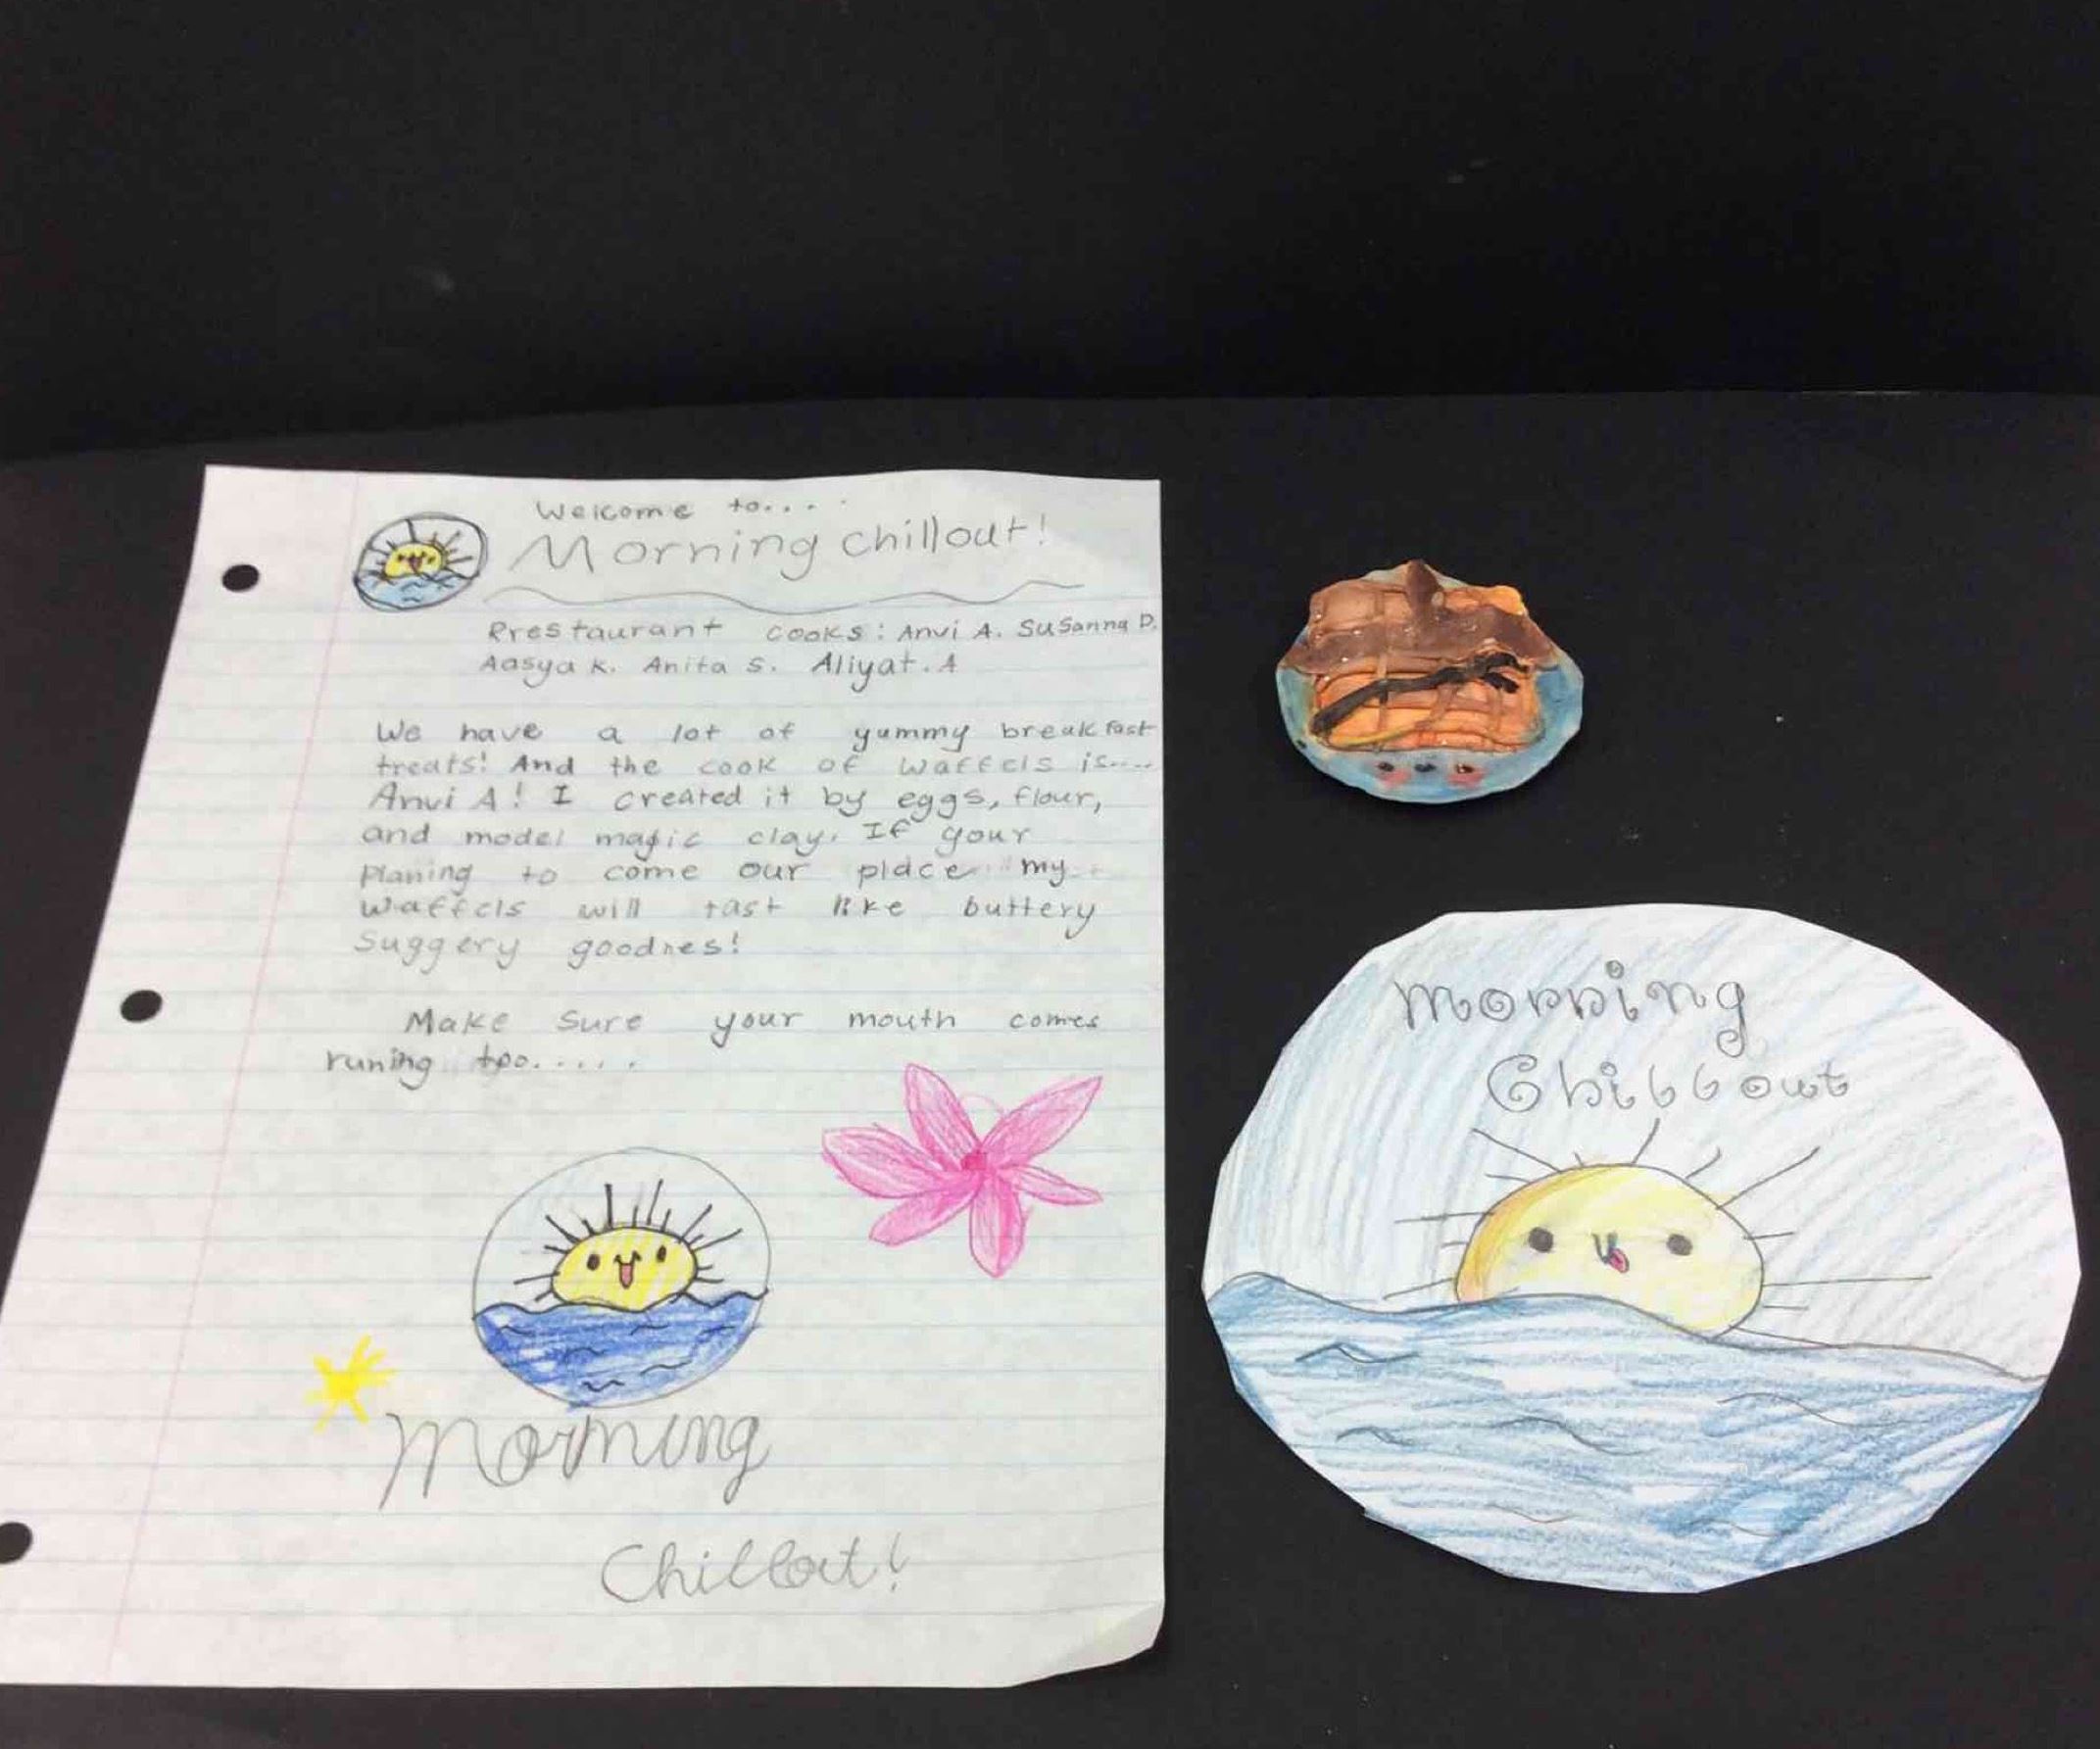 Welcome to....
Morning chillout!
Prestaurant cooks: Anvi A. Susanna D.
Aasya K. Anita S. Aliyat. A
We have a lot of yummy breakfast
treats! And the cook of waffels is....
Anvi A! I created it by eggs, flour,
and model magic clay. If your
planing to come our place my
waffels will tast like buttery
suggery goodnes!
Make sure your mouth comes
runing too......
Morning
Chillout!
Morning
Chillout